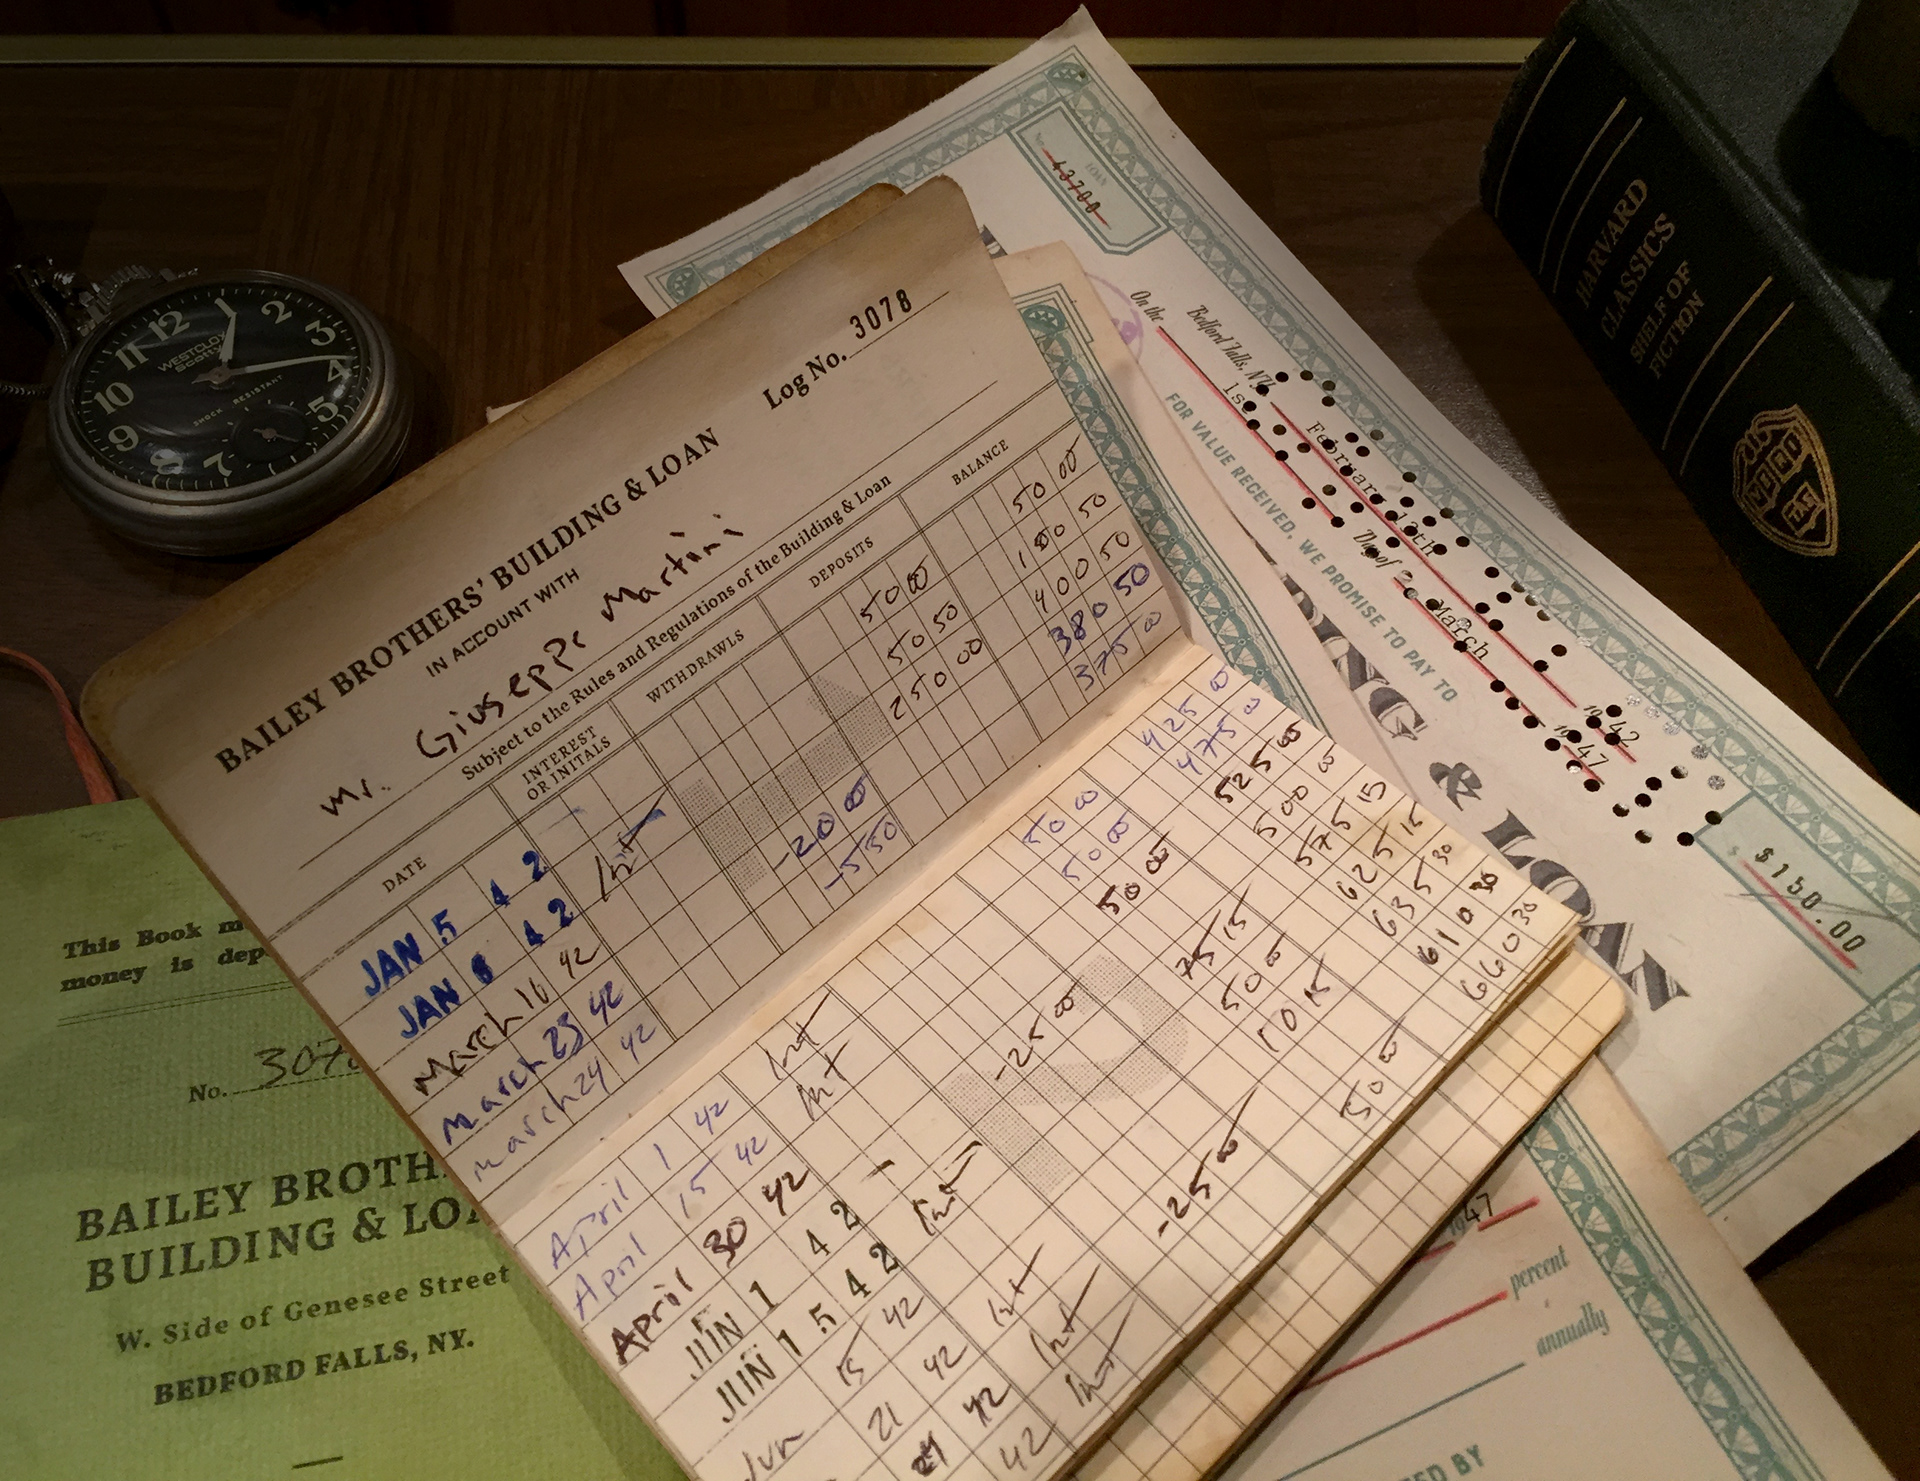 12
1
2
3
4
5
7
8
9
10
11
WESTCLOX
Scotty
SHOCK - RESISTANT
Log No. 3078
BAILEY BROTHERS' BUILDING & LOAN
IN ACCOUNT WITH
Mr. Giuseppe Martini
Subject to the Rules and Regulations of the Building & Loan
DATE INTEREST OR INITALS WITHDRAWLS DEPOSITS BALANCE
JAN 5 42 50 00 50 00
JAN 8 42 Int 50 50 100 50
March 16 42 250 00 400 50
March 23 42 -20 00 380 50
March 24 42 -5 50 375 00
April 1 42 50 00 425 00
April 15 42 Int 50 00 475 00
April 30 42 Int 50 00 525 00
JUN 1 42 -25 00 500 00
JUN 15 42 75 15 575 15
Jun 15 42 Int 50 00 625 15
21 42 Int 10 15 635 30
42 Int -25 00 610 30
42 Int 50 00 660 30
This Book m
money is dep
No. 307
BAILEY BROTH
BUILDING & LOA
W. Side of Genesee Street
BEDFORD FALLS, NY.
43700
Bedford Falls, N.Y. February 12th 1942
On the 1st Day of March 1947
FOR VALUE RECEIVED, WE PROMISE TO PAY TO
$150.00
& LOAN
47
percent
annually
TED BY
HARVARD
CLASSICS
SHELF OF
FICTION